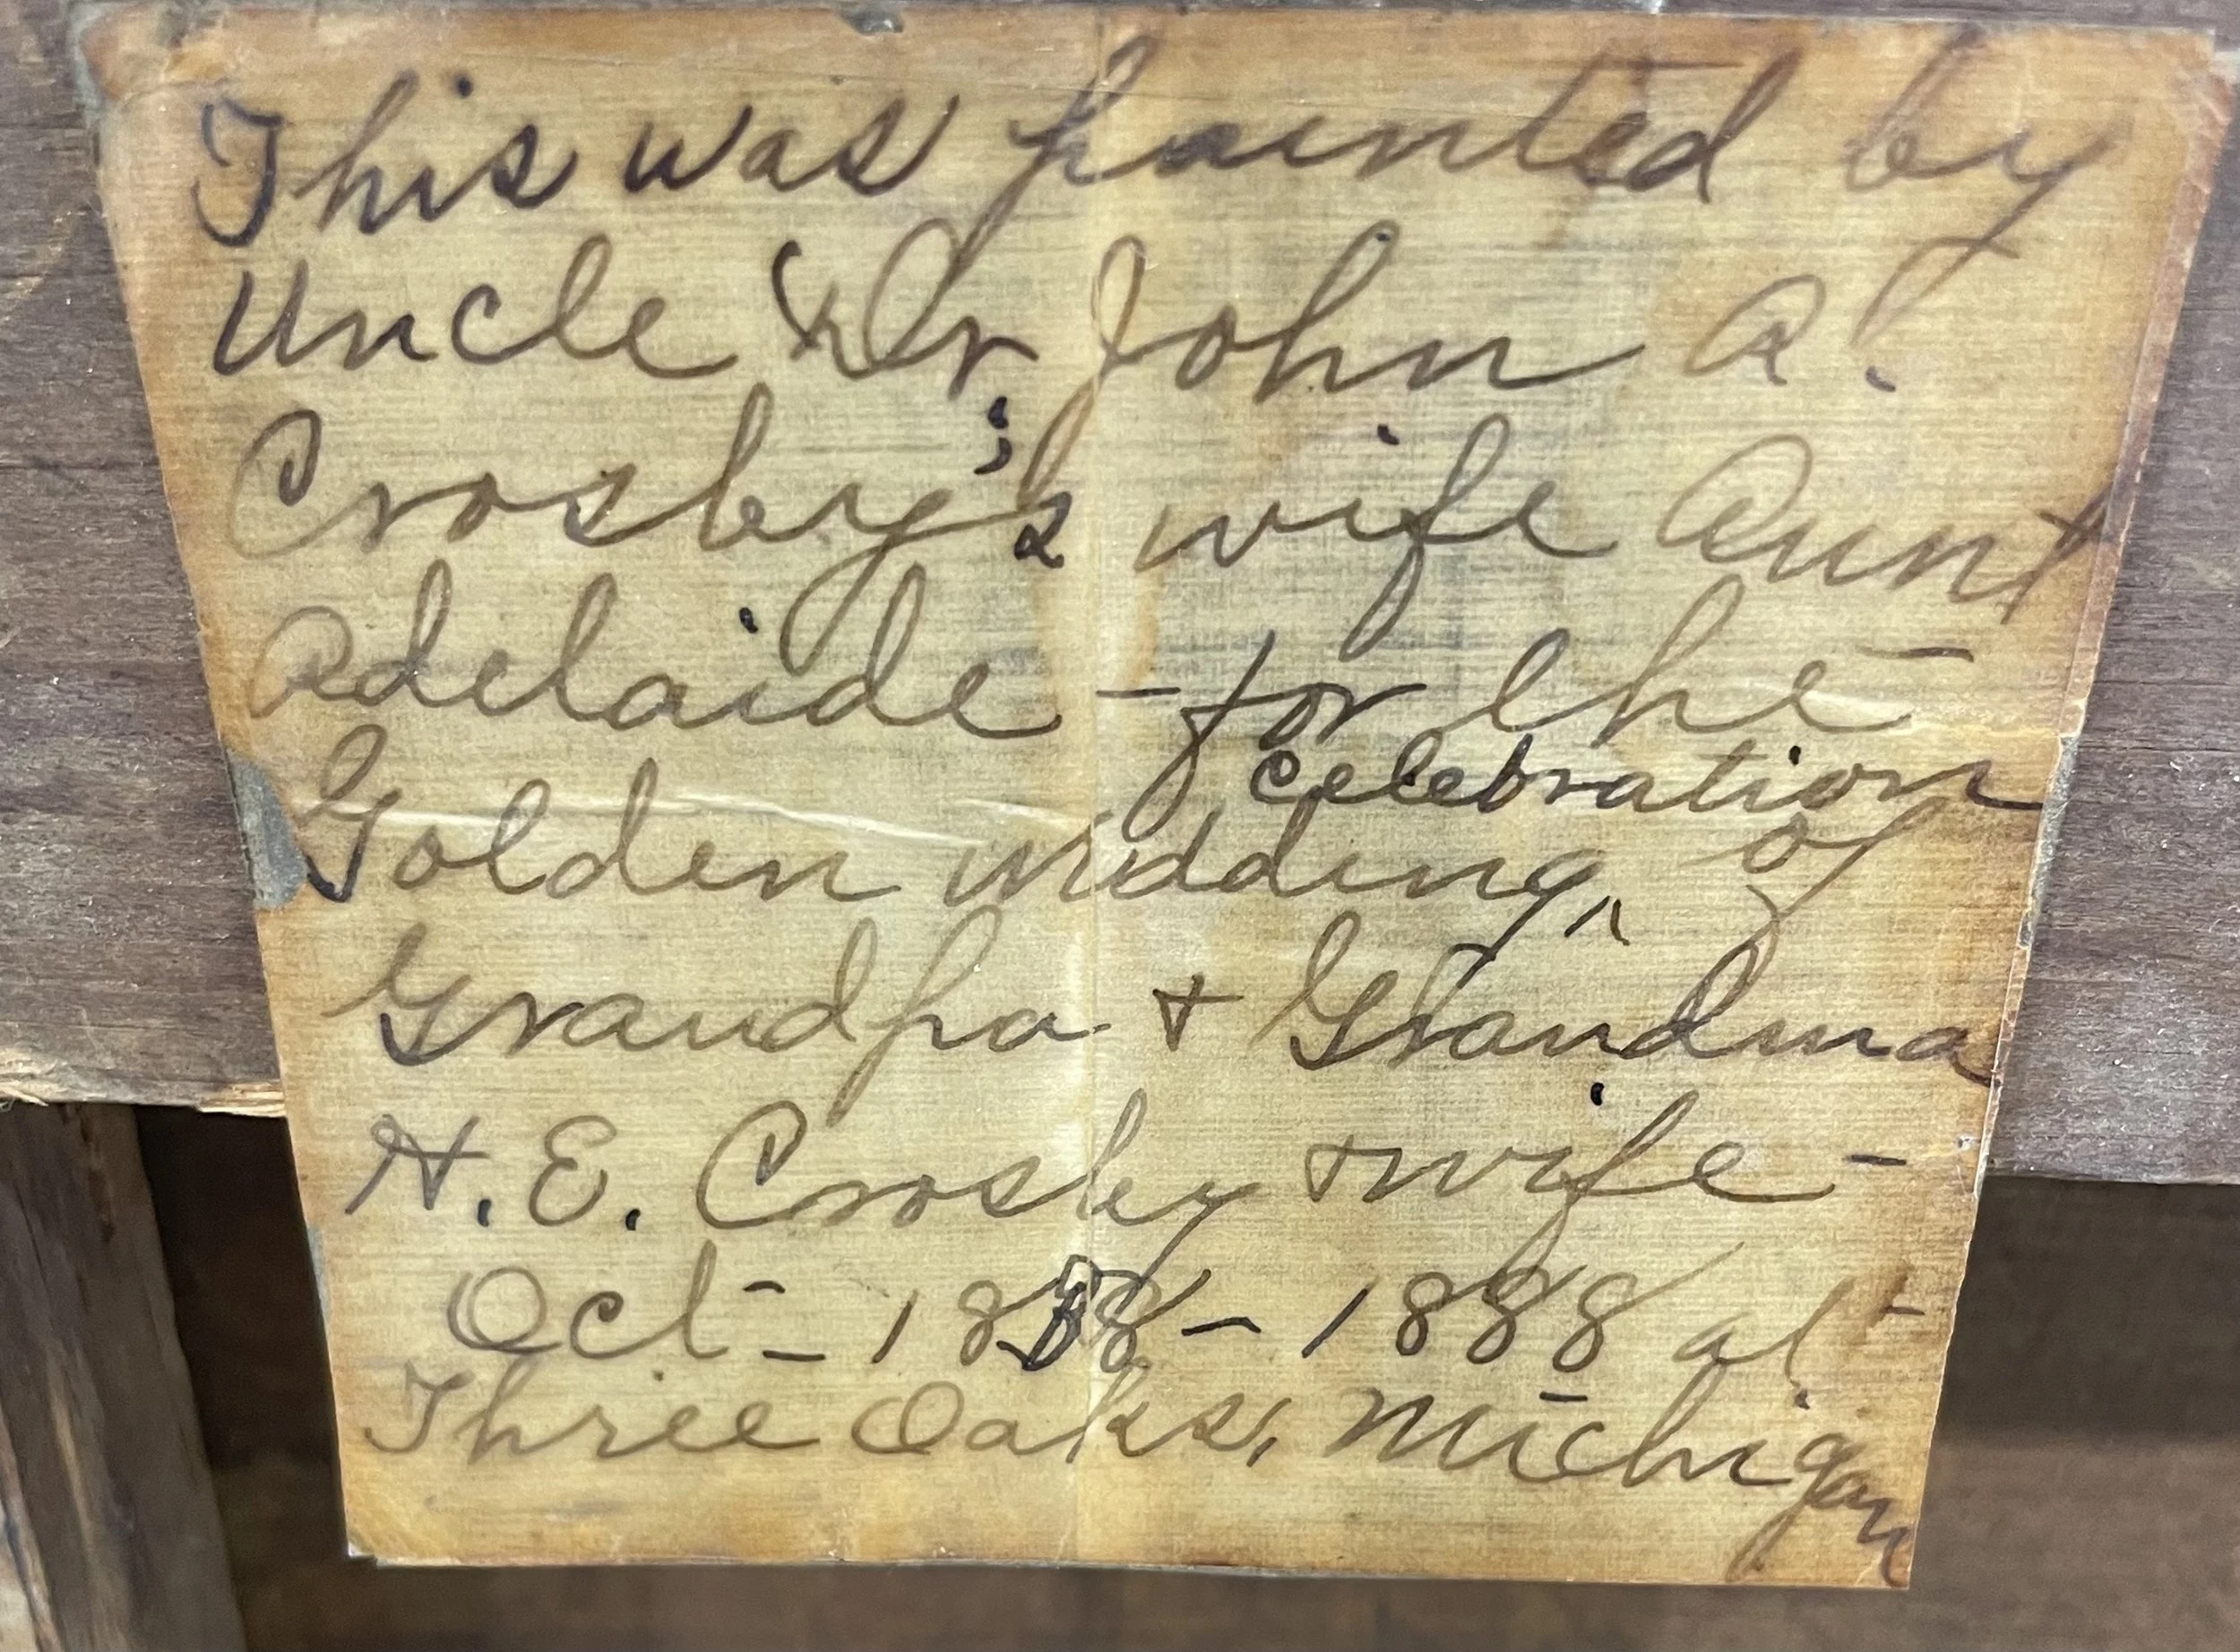 This was painted by
Uncle & Dr John A.
Crosby's wife Aunt
Adelaide - for the
celebration
Golden wedding ^ of
Grandpa + Grandma
H. E. Crosby + wife -
Oct - 1838 - 1888 at
Three Oaks, Michigan